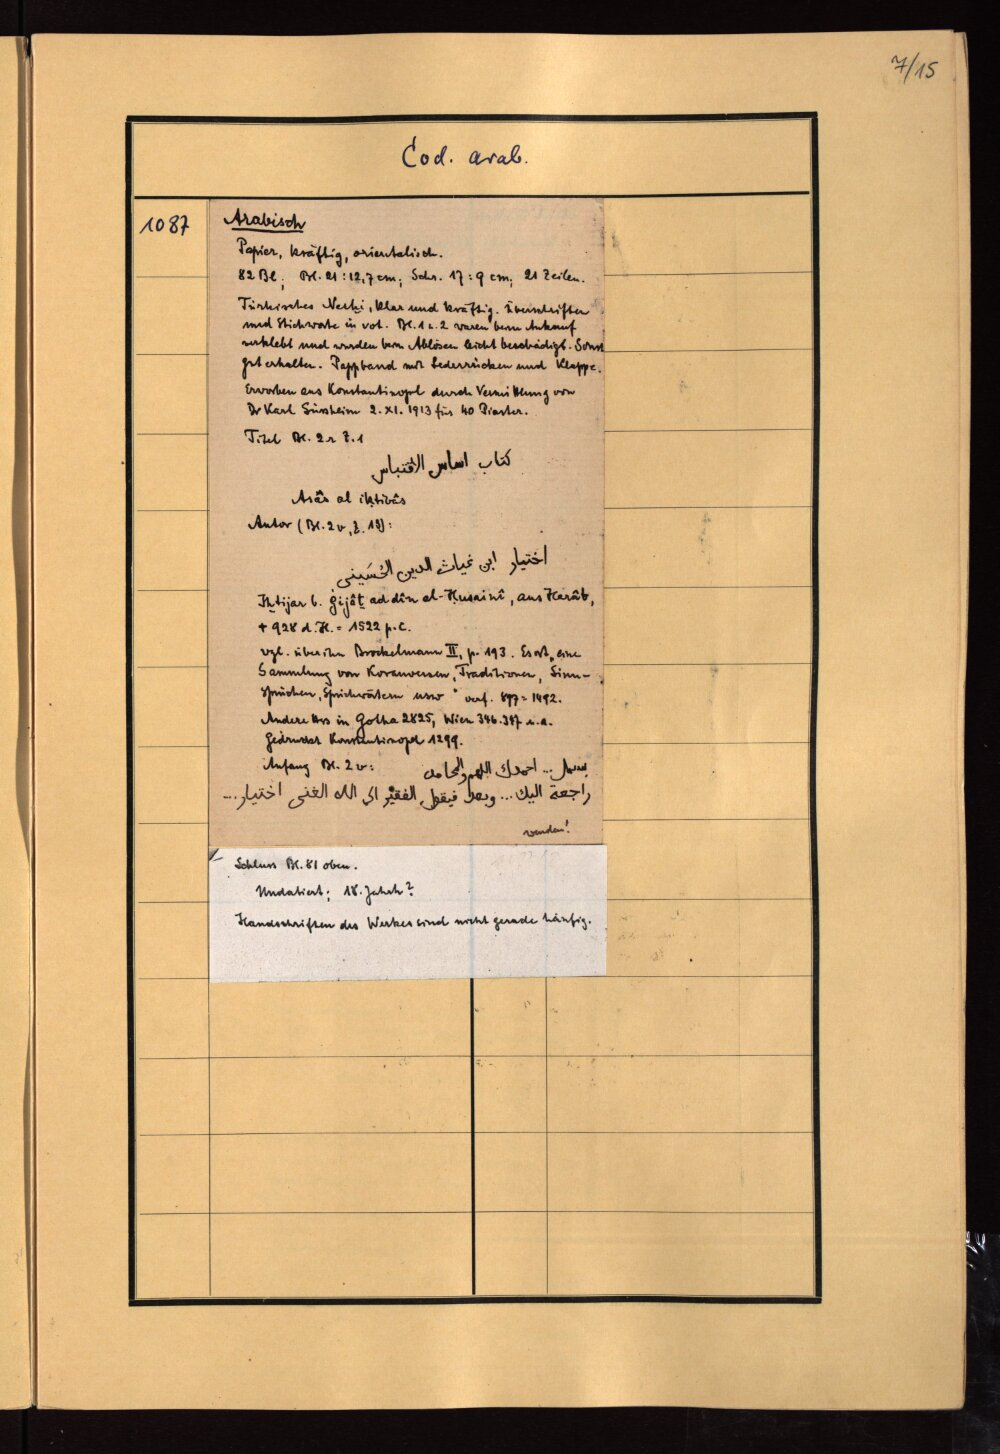 7/15
Cod. arab.
1087
Arabisch
Papier, kräftig, orientalisch.
82 Bl; Bl. 21 : 12,7 cm; Schr. 17 : 9 cm; 21 Zeilen.
Türkisches Neskhi, klar und kräftig. Überschriften
und Stichworte in rot. Bl. 1 u. 2 waren beim Ankauf
verklebt und wurden beim Ablösen leicht beschädigt. Sonst
gut erhalten. Pappband mit Lederrücken und Klappe.
Erworben aus Konstantinopel durch Vermittlung von
Dr Karl Süssheim 2. XI. 1913 für 40 Piaster.
Titel Bl. 2r Z. 1
كتاب اساس الاقتباس
Asâs al iḳtibâs
Autor (Bl. 2v, Z. 19):
اختيار ابن غياث الدين الحُسَيني
Iḫtijar b. ġijâṯ ad dîn al-Ḥusainî, aus Harâb,
+ 928 d. H. = 1522 p. C.
vgl. über ihn Brockelmann II, p. 193. Es ist „eine
Sammlung von Koranversen, Traditionen, Sinn-
sprüchen, Sprichwörtern usw" verf. 897 = 1492.
Andere Hss in Gotha 2825, Wien 346. 347 u. a.
Gedruckt Konstantinopel 1299.
Anfang Bl. 2v: بسمل... احمدك اللهم والمحامد
راجعة اليك... وبعد فيقول الفقير الى الله الغنى اختيار...
wenden!
Schluss Bl. 81 oben.
Undatiert; 18. Jahrh?
Handschriften des Werkes sind nicht gerade häufig.